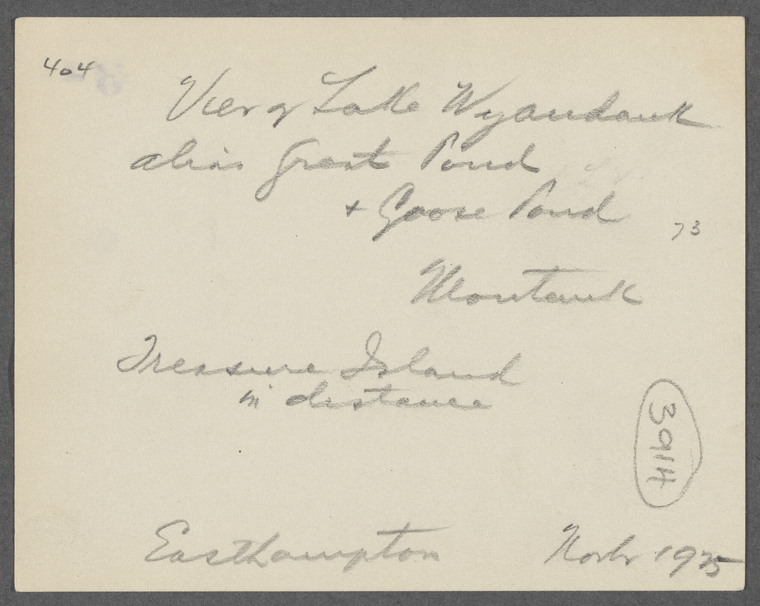 404
View of Lake Wyandank
alias Great Pond
+ Goose Pond
73
Montauk
Treasure Island
in distance
3914
Easthampton Novbr 1925